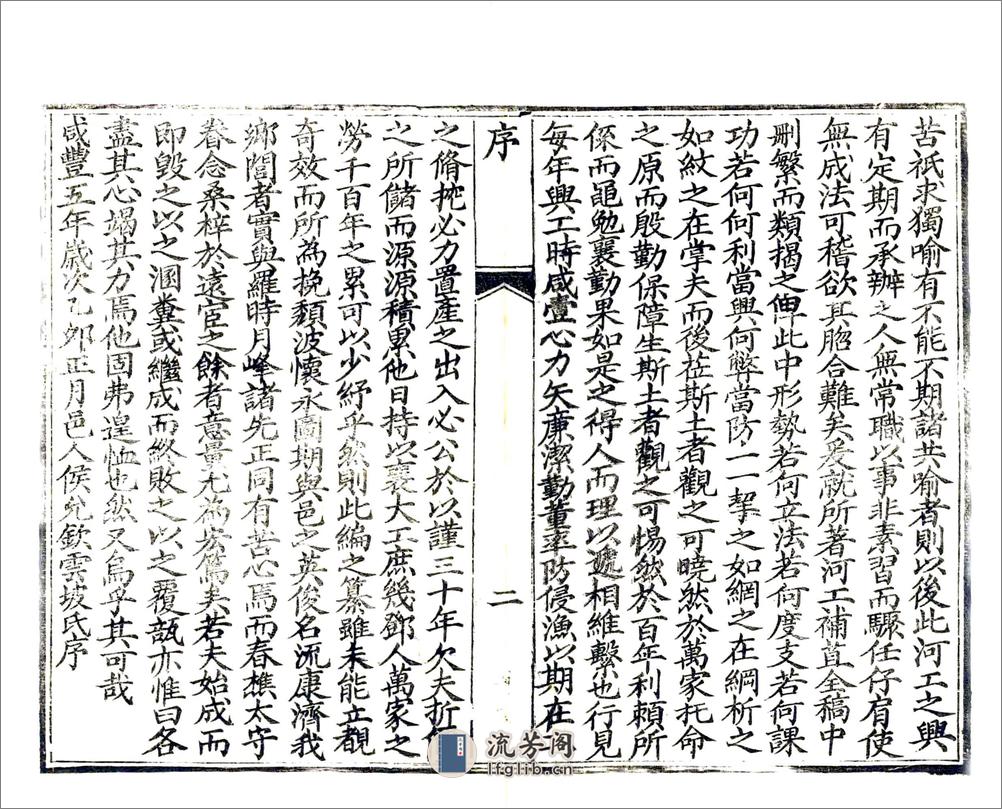 苦祇求獨喻有不能不期諸共喻者則以後此河工之興
有定期而承辦之人無常職以事非素習而驟任仔肩使
無成法可稽欲其脗合難矣爰就所著河工補苴全稿中
刪繁而類揭之俾此中形勢若何立法若何度支若何課
功若何何利當興何弊當防一一挈之如網之在綱析之
如紋之在掌夫而後莅斯土者觀之可曉然於萬家托命
之原而殷勤保障生斯土者觀之可惕然於百年利賴所
係而黽勉襄勤果如是之得人而理以遞相維繫也行見
每年興工時咸壹心力矢廉潔勤董率防侵漁以期在
序
二
之脩挖必力置產之出入必公於以謹三十年欠夫折
之所儲而源源積累他日持以襄大工庶幾鄧人萬家之
勞千百年之累可以少紓乎然則此編之纂雖未能立覩
奇效而所為挽頹波懷永圖期與邑之英俊名流康濟我
鄉閭者實與羅時月峰諸先正同有苦心焉而春樵太守
眷念桑梓於遠宦之餘者意量尤為岑篤矣若夫始成而
即毀之以之溷糞或繼成而終敗之以之覆瓿亦惟曰各
盡其心竭其力焉他固弗遑恤也然又烏乎其可哉
咸豐五年歲次乙卯正月邑人侯允欽雲坡氏序
流芳阁
lfglib.cn